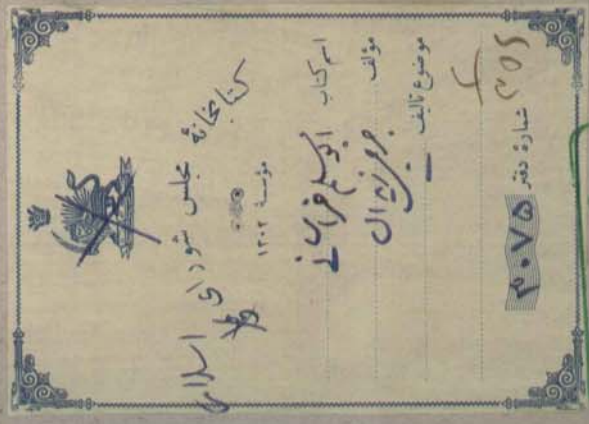 کتابخانهٔ مجلس شورای اسلامی
مؤسسهٔ ۱۳۰۲
اسم کتاب ابومسلم خراسانی
مؤلف جرجی زیدان
موضوع تألیف
شمارهٔ دفتر ۳۰۷۵